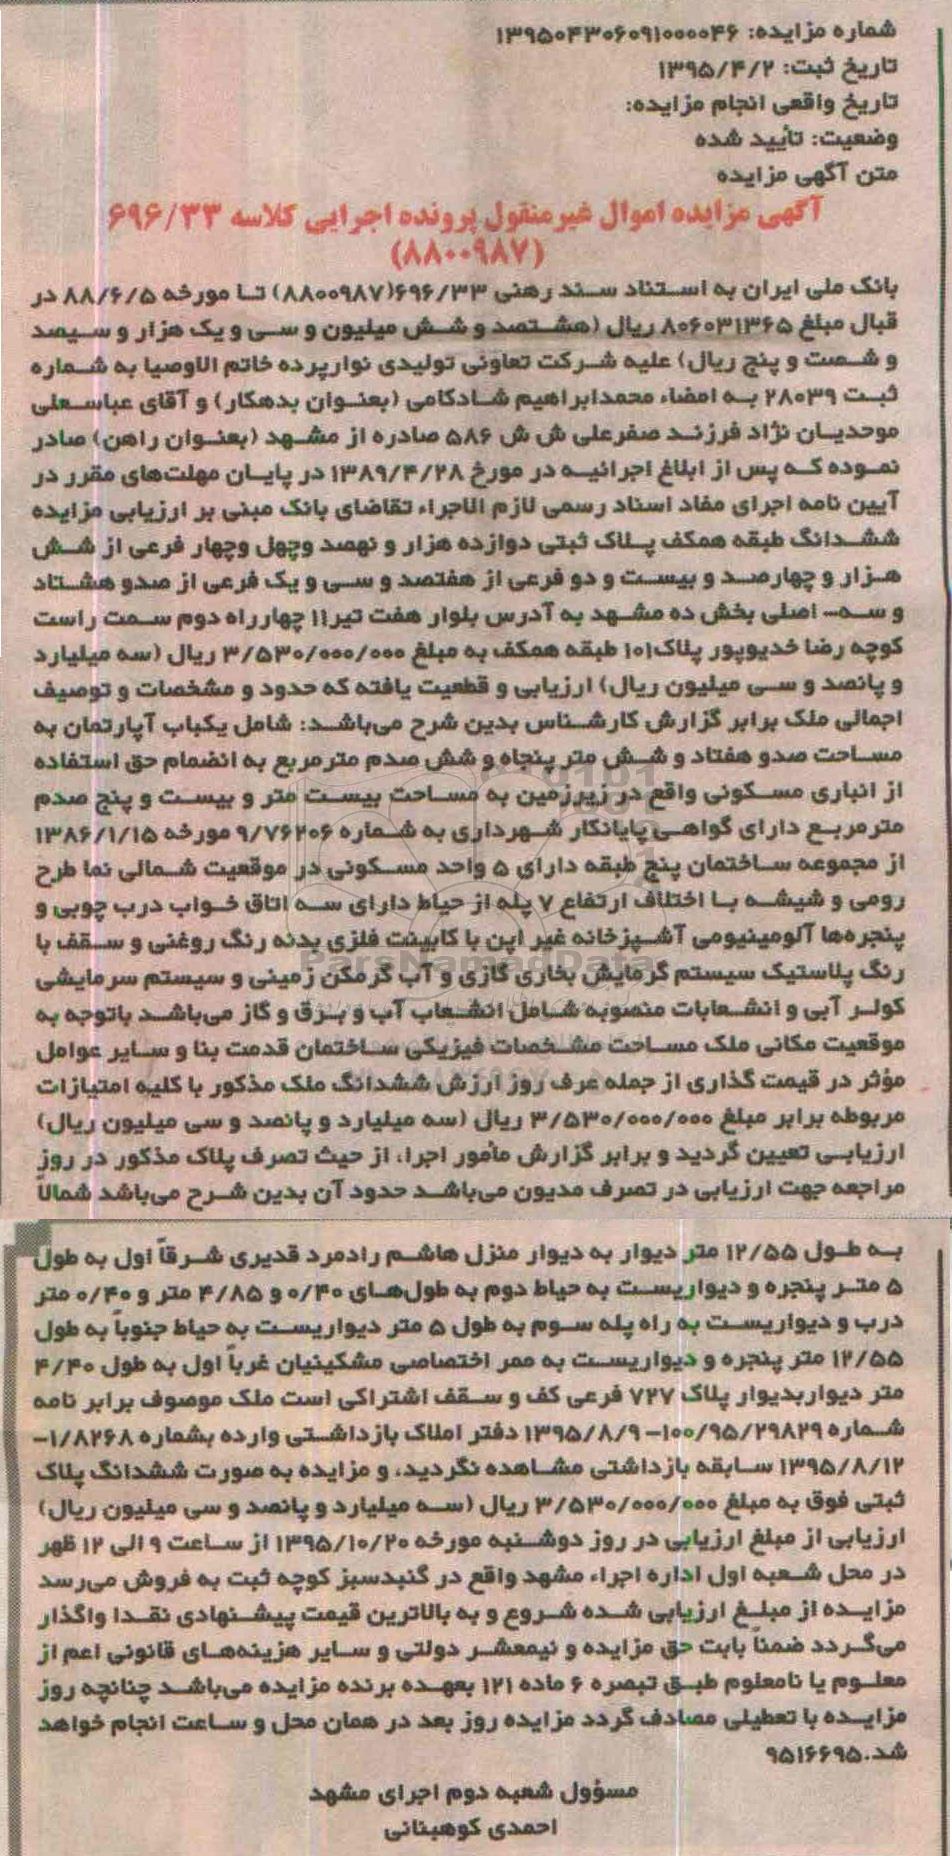 شماره مزایده: ۱۳۹۵۰۴۳۰۶۰۹۱۰۰۰۰۴۶
تاریخ ثبت: ۱۳۹۵/۴/۲
تاریخ واقعی انجام مزایده:
وضعیت: تأیید شده
متن آگهی مزایده
آگهی مزایده اموال غیرمنقول پرونده اجرایی کلاسه ۶۹۶/۳۳
(۸۸۰۰۹۸۷)
بانک ملی ایران به استناد سند رهنی ۶۹۶/۳۳(۸۸۰۰۹۸۷) تا مورخه ۸۸/۶/۵ در
قبال مبلغ ۸۰۶۰۳۱۳۶۵ ریال (هشتصد و شش میلیون و سی و یک هزار و سیصد
و شصت و پنج ریال) علیه شرکت تعاونی تولیدی نوارپرده خاتم الاوصیا به شماره
ثبت ۲۸۰۳۹ به امضاء محمدابراهیم شادکامی (بعنوان بدهکار) و آقای عباسعلی
موحدیان نژاد فرزند صفرعلی ش ش ۵۸۶ صادره از مشهد (بعنوان راهن) صادر
نموده که پس از ابلاغ اجرائیه در مورخ ۱۳۸۹/۴/۲۸ در پایان مهلت‌های مقرر در
آیین نامه اجرای مفاد اسناد رسمی لازم الاجراء تقاضای بانک مبنی بر ارزیابی مزایده
ششدانگ طبقه همکف پلاک ثبتی دوازده هزار و نهصد وچهل وچهار فرعی از شش
هزار و چهارصد و بیست و دو فرعی از هفتصد و سی و یک فرعی از صدو هشتاد
و سه- اصلی بخش ده مشهد به آدرس بلوار هفت تیر۱۱ چهارراه دوم سمت راست
کوچه رضا خدیوپور پلاک۱۰۱ طبقه همکف به مبلغ ۳/۵۳۰/۰۰۰/۰۰۰ ریال (سه میلیارد
و پانصد و سی میلیون ریال) ارزیابی و قطعیت یافته که حدود و مشخصات و توصیف
اجمالی ملک برابر گزارش کارشناس بدین شرح می‌باشد: شامل یکباب آپارتمان به
مساحت صدو هفتاد و شش متر پنجاه و شش صدم مترمربع به انضمام حق استفاده
از انباری مسکونی واقع در زیرزمین به مساحت بیست متر و بیست و پنج صدم
مترمربع دارای گواهی پایانکار شهرداری به شماره ۹/۷۶۲۰۶ مورخه ۱۳۸۶/۱/۱۵
از مجموعه ساختمان پنج طبقه دارای ۵ واحد مسکونی در موقعیت شمالی نما طرح
رومی و شیشه با اختلاف ارتفاع ۷ پله از حیاط دارای سه اتاق خواب درب چوبی و
پنجره‌ها آلومینیومی آشپزخانه غیر اپن با کابینت فلزی بدنه رنگ روغنی و سقف با
رنگ پلاستیک سیستم گرمایش بخاری گازی و آب گرمکن زمینی و سیستم سرمایشی
کولر آبی و انشعابات منصوبه شامل انشعاب آب و برق و گاز می‌باشد باتوجه به
موقعیت مکانی ملک مساحت مشخصات فیزیکی ساختمان قدمت بنا و سایر عوامل
مؤثر در قیمت گذاری از جمله عرف روز ارزش ششدانگ ملک مذکور با کلیه امتیازات
مربوطه برابر مبلغ ۳/۵۳۰/۰۰۰/۰۰۰ ریال (سه میلیارد و پانصد و سی میلیون ریال)
ارزیابی تعیین گردید و برابر گزارش مأمور اجرا، از حیث تصرف پلاک مذکور در روز
مراجعه جهت ارزیابی در تصرف مدیون می‌باشد حدود آن بدین شرح می‌باشد شمالاً
به طول ۱۲/۵۵ متر دیوار به دیوار منزل هاشم رادمرد قدیری شرقاً اول به طول
۵ متر پنجره و دیواریست به حیاط دوم به طول‌های ۰/۴۰ و ۴/۸۵ متر و ۰/۴۰ متر
درب و دیواریست به راه پله سوم به طول ۵ متر دیواریست به حیاط جنوباً به طول
۱۲/۵۵ متر پنجره و دیواریست به ممر اختصاصی مشکینیان غرباً اول به طول ۴/۴۰
متر دیواربدیوار پلاک ۷۲۷ فرعی کف و سقف اشتراکی است ملک موصوف برابر نامه
شماره ۱۰۰/۹۵/۲۹۸۲۹-۱۳۹۵/۸/۹ دفتر املاک بازداشتی وارده بشماره ۱/۸۲۶۸-
۱۳۹۵/۸/۱۲ سابقه بازداشتی مشاهده نگردید، و مزایده به صورت ششدانگ پلاک
ثبتی فوق به مبلغ ۳/۵۳۰/۰۰۰/۰۰۰ ریال (سه میلیارد و پانصد و سی میلیون ریال)
ارزیابی از مبلغ ارزیابی در روز دوشنبه مورخه ۱۳۹۵/۱۰/۲۰ از ساعت ۹ الی ۱۲ ظهر
در محل شعبه اول اداره اجراء مشهد واقع در گنبدسبز کوچه ثبت به فروش می‌رسد
مزایده از مبلغ ارزیابی شده شروع و به بالاترین قیمت پیشنهادی نقدا واگذار
می‌گردد ضمناً بابت حق مزایده و نیمعشر دولتی و سایر هزینه‌های قانونی اعم از
معلوم یا نامعلوم طبق تبصره ۶ ماده ۱۲۱ بعهده برنده مزایده می‌باشد چنانچه روز
مزایده با تعطیلی مصادف گردد مزایده روز بعد در همان محل و ساعت انجام خواهد
شد.۹۵۱۶۶۹۵
مسؤول شعبه دوم اجرای مشهد
احمدی کوهبنانی
ParsNamadData